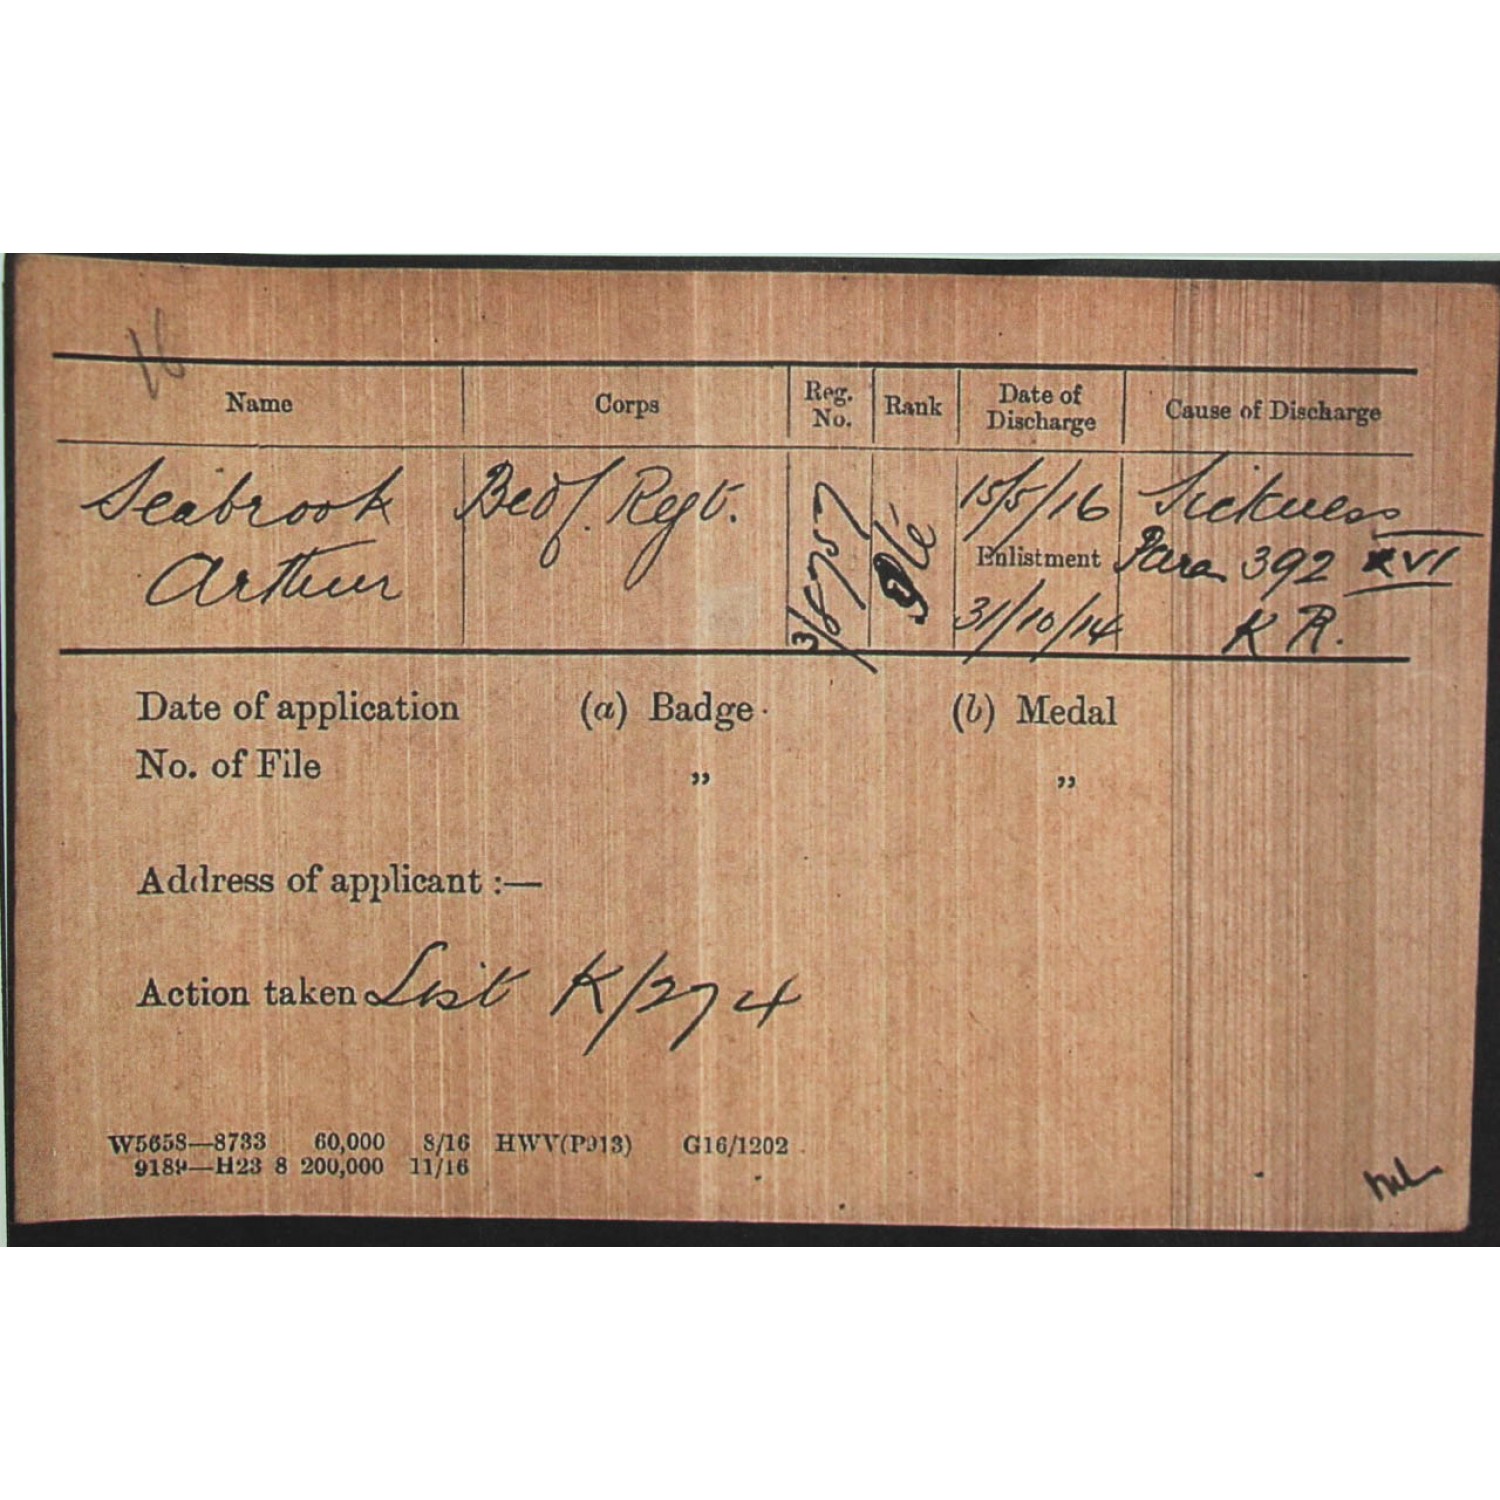 16
Name Corps Reg. No. Rank Date of Discharge Cause of Discharge
Seabrook Bedf. Regt. 3/8757 Pte 15/5/16 Sickness
Arthur Enlistment Para 392 XVI
31/10/14 K R.
Date of application (a) Badge (b) Medal
No. of File " "
Address of applicant :—
Action taken List K/274
W5658—8733 60,000 8/16 HWV(P913) G16/1202
9189—H23 8 200,000 11/16